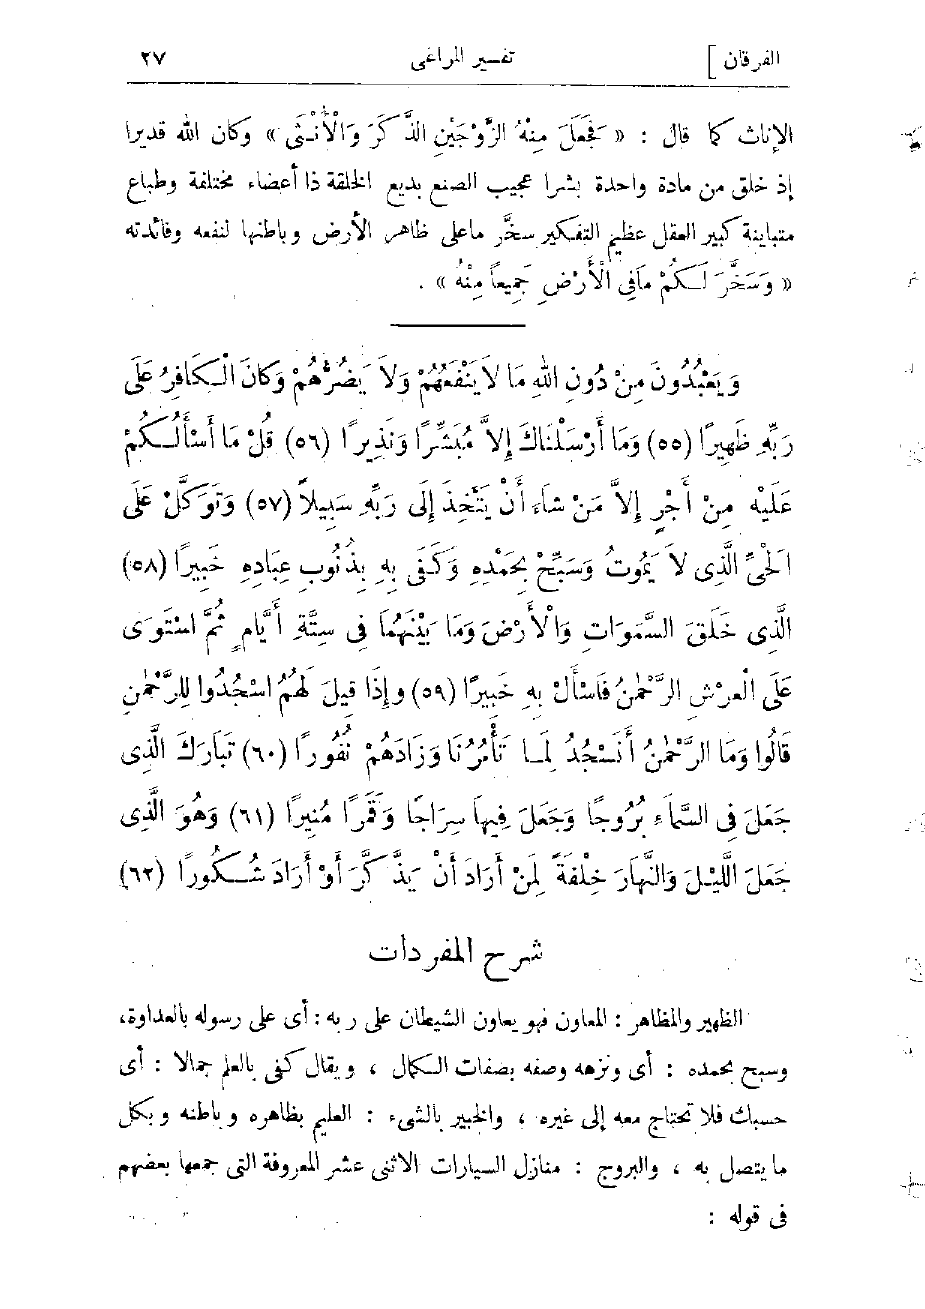 الفرقان ]
تفسير المراغى
٢٧
الإناث كما قال : « فَجَعَلَ مِنْهُ الزَّوْجَيْنِ الذَّكَرَ وَالْأُنْثَى » وكان الله قديرا
إذ خلق من مادة واحدة بشرا عجيب الصنع بديع الخلقة ذا أعضاء مختلفة وطباع
متباينة كبير العقل عظيم التفكير سخَّر ماعلى ظاهر الأرض وباطنها لنفعه وفائدته
« وَسَخَّرَ لَكُمْ مَافِى الْأَرْضِ جَمِيعاً مِنْهُ » .
وَيَعْبُدُونَ مِنْ دُونِ اللهِ مَا لاَ يَنْفَعُهُمْ وَلاَ يَضُرُّهُمْ وَكَانَ الْكَافِرُ عَلَى
رَبِّهِ ظَهِيرًا (٥٥) وَمَا أَرْسَلْنَاكَ إِلاَّ مُبَشِّرًا وَنَذِيرًا (٥٦) قُلْ مَا أَسْأَلُكُمْ
عَلَيْهِ مِنْ أَجْرٍ إِلاَّ مَنْ شَاءَ أَنْ يَتَّخِذَ إِلَى رَبِّهِ سَبِيلاً (٥٧) وَتَوَكَّلْ عَلَى
الْحَىِّ الَّذِى لاَ يَمُوتُ وَسَبِّحْ بِحَمْدِهِ وَكَفَى بِهِ بِذُنُوبِ عِبَادِهِ خَبِيرًا (٥٨)
الَّذِى خَلَقَ السَّمَوَاتِ وَالْأَرْضَ وَمَا بَيْنَهُمَا فِى سِتَّةِ أَيَّامٍ ثُمَّ اسْتَوَى
عَلَى الْعَرْشِ الرَّحْمٰنُ فَاسْأَلْ بِهِ خَبِيرًا (٥٩) وَإِذَا قِيلَ لَهُمُ اسْجُدُوا لِلرَّحْمٰنِ
قَالُوا وَمَا الرَّحْمٰنُ أَنَسْجُدُ لِمَا تَأْمُرُنَا وَزَادَهُمْ نُفُورًا (٦٠) تَبَارَكَ الَّذِى
جَعَلَ فِى السَّمَاءِ بُرُوجًا وَجَعَلَ فِيهَا سِرَاجًا وَقَمَرًا مُنِيرًا (٦١) وَهُوَ الَّذِى
جَعَلَ اللَّيْلَ وَالنَّهَارَ خِلْفَةً لِمَنْ أَرَادَ أَنْ يَذَّكَّرَ أَوْ أَرَادَ شُكُورًا (٦٢)
شرح المفردات
الظهير والمظاهر : المعاون فهو يعاون الشيطان على ربه : أى على رسوله بالعداوة،
وسبح بحمده : أى ونزهه وصفه بصفات الكمال ، ويقال كفى بالعلم جمالا : أى
حسبك فلا تحتاج معه إلى غيره ، والخبير بالشىء : العليم بظاهره وباطنه وبكل
ما يتصل به ، والبروج : منازل السيارات الاثنى عشر المعروفة التى جمعها بعضهم
فى قوله :